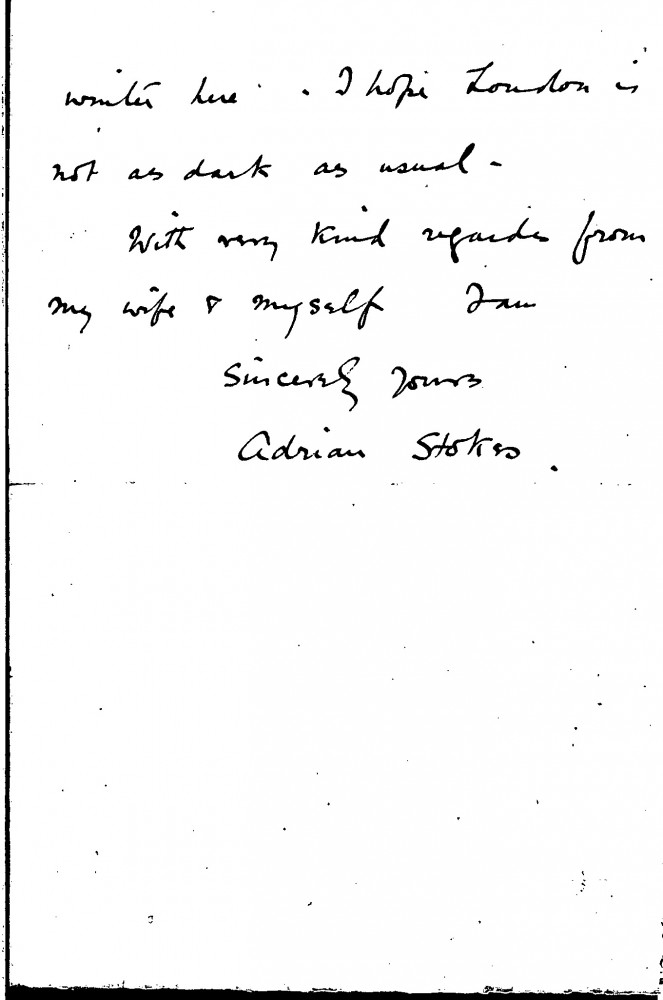 winter here. I hope London is
not as dark as usual -
With very kind regards from
my wife & myself I am
Sincerely yours
Adrian Stokes.